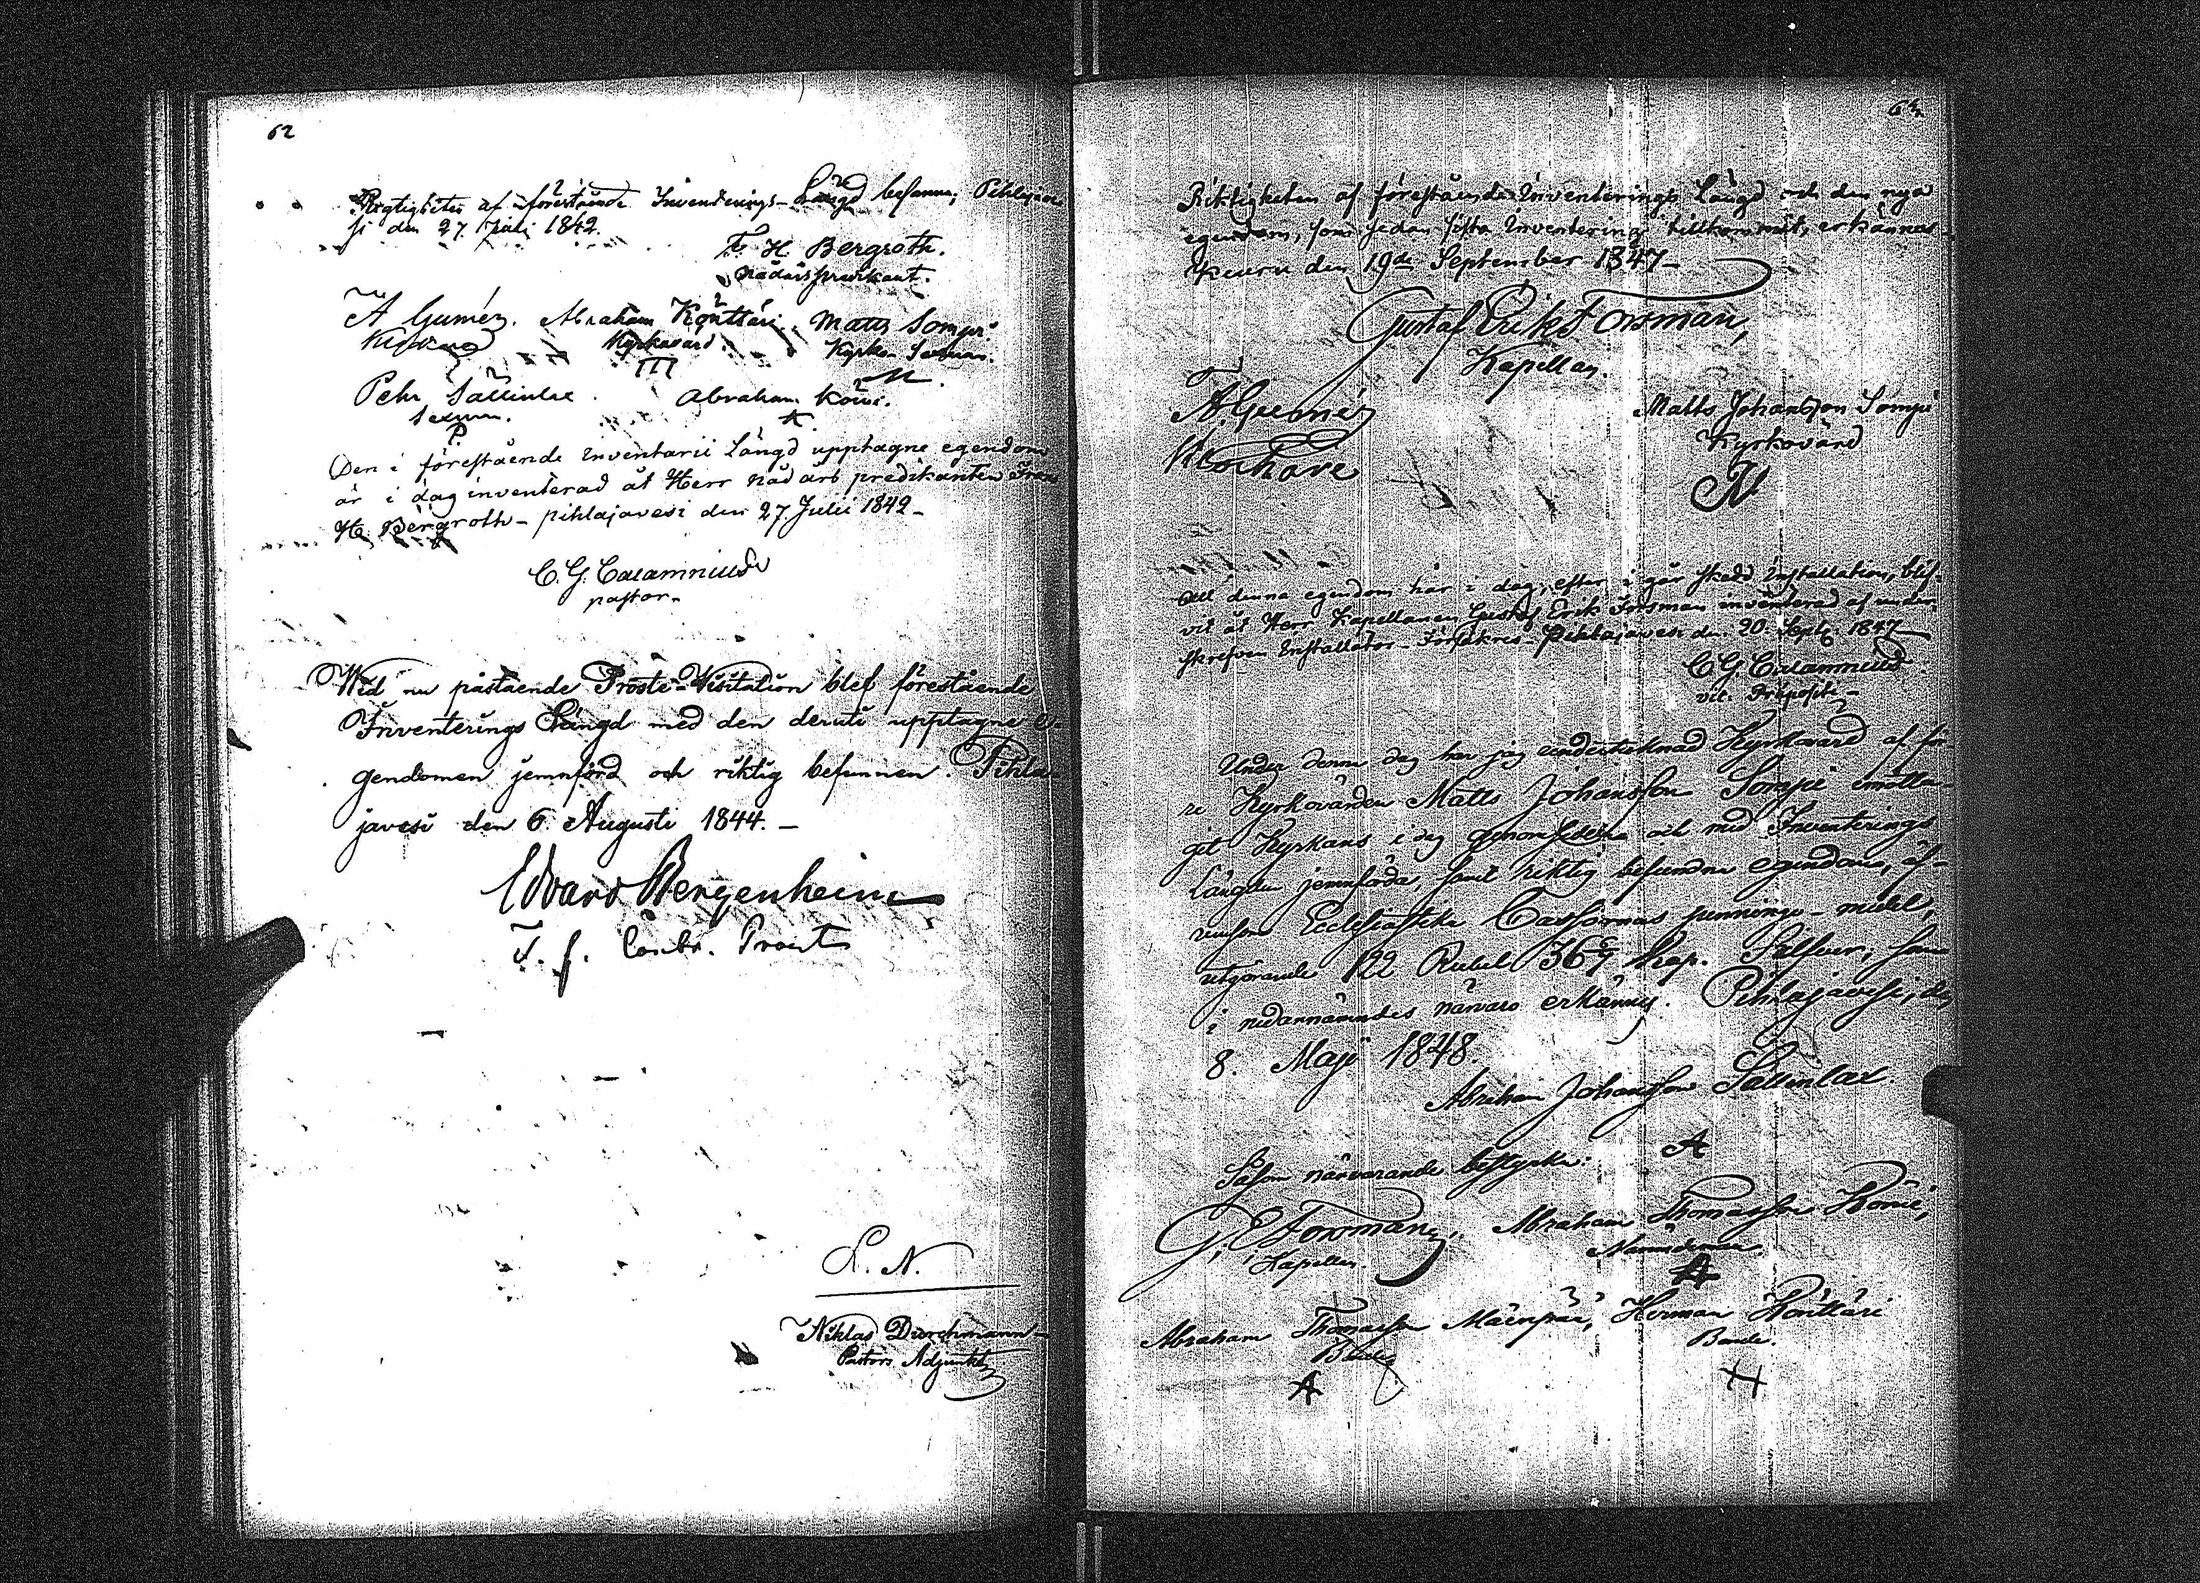 62
Rigtigheten af förestående Inventerings-Längd befanns; Pihlajave
si den 27. Juli 1842.
F. H. Bergroth.
Nådårspredikant.
A Gumér. Abraham Könttäri Matts Sompi
Kyrkovärd. Kyrko Sexman.
M
Pehr Sällinlax. Abraham Könii.
Sexman.
A
P
Den i förestående Inventarii Längd upptagne egendom
är i dag inventerad åt Herr Nådårs predikanten Frans
H. Bergroth - Pihlajavesi den 27. Julii 1842 -
C. G. Calamnius
pastor -
Wid nu påstående Proste-Visitation blef förestående
Inventerings Längd med den deruti upptagne e-
gendomen jemnförd och riktig befunnen. Pihla-
javesi den 6. Augusti 1844. -
Edvard Bergenheim
T. f. Contr. Prost
L. N.
Niklas Durchmann
Pastors Adjunkt
63
Riktigheten af förestående Inventerings Längd och den nya
egendom, som sedan sista Inventering tillkommit, erkännes
Keuru den 19de September 1847 -
Gustaf Erik Forsman,
Kapellan.
A. Gumér Matts Johansson Sompi
Kyrkovärd
N
All denna egendom har i dag, efter i går skedd Installation, blif-
vit åt Herr Kapellanen Gustaf Erik Forsman inventerad af under-
skrefven Installator - Försäkras - Pihlajavesi den 20. Sept. 1847
C G Calamnius
vic. Præposit. -
Under denna dag har jag undertecknad Kyrkovärd af fö-
re Kyrkovärden Matts Johansson Sompi emotta-
git Kyrkans i dag genomsedda och med Inventerings
Längden jemnförda, samt riktig befundne egendom, äf-
vensom Ecclesiastike Cassornas pennings-medel,
utgörande 122 Rubel 36 Kop. Silfver; som
i nedannämndes närvaro erkännes. Pihlajavesi, den
8. Maji 1848.
Abraham Johansson Sällinlax.
A
Såsom närvarande bestyrka:
G. E. Forsman, Abraham Thomasson Könii,
Kapellan. Nämndeman
A
Abraham Thomasson Mäenpää, Herman Könttäri
Bonde Bonde.
A H